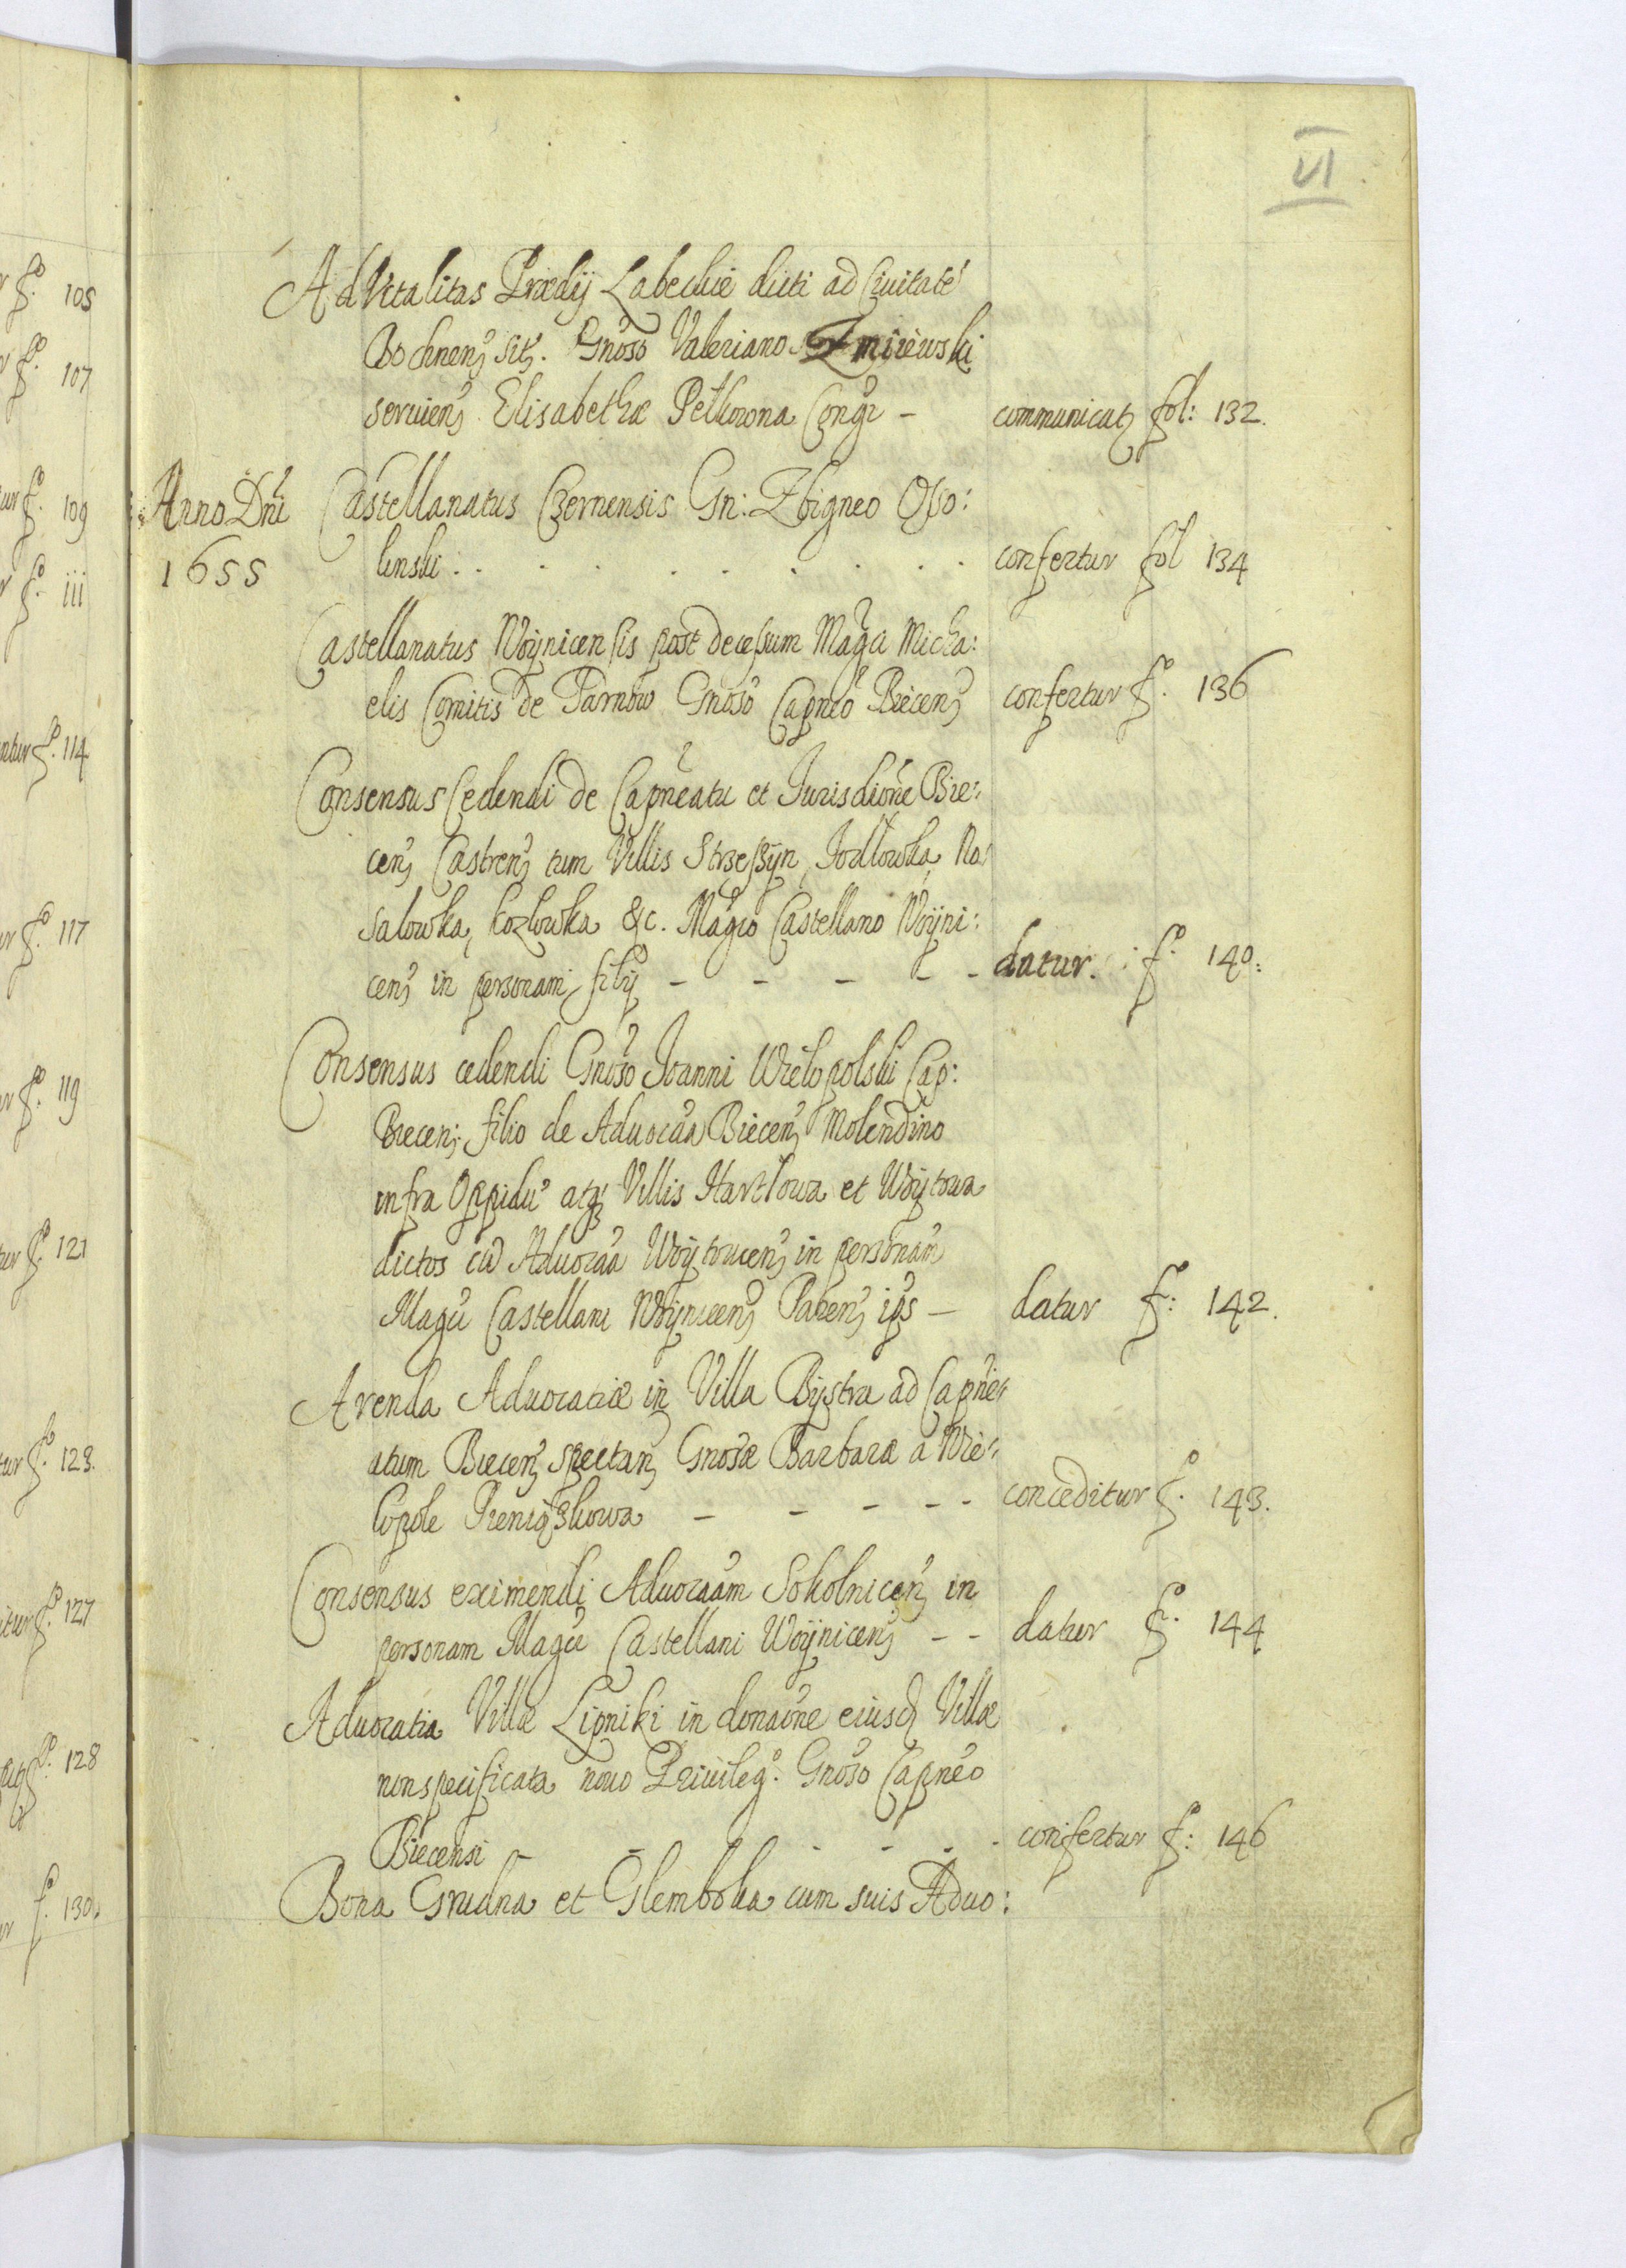 VI
Ad Vitalitas Prædij Labechie dicti ad Ciuitatē
Bochnen̄ sit̄. Gnōso Valeriano Zmiiewski
seruien̄ Elisabethæ Petkowna Congi - communicat̄ fol: 132.
Anno Dn̄i Castellanatus Czernensis Gn: Zbigneo Osso:
1655 linski . . . . . . . . confertur fol 134
Castellanatus Woynicensis post decessum Magci Micha:
elis Comitis de Tarnow Gnōso Capnēo Biecen̄ confertur f°. 136
Consensus Cedendi de Capnēatu et Jurisdiōne Bie:
cen̄ Castren̄ tum Villis Strzeszyn, Jodłowka, Ro:
salowka, Kozlowka &c. Magco Castellano Woyni:
cen̄ in personam filij - - - - - datur. f°. 140.
Consensus cedendi Gnōso Joanni Wielopolski Cap:
Biecen: filio de Aduocāa Biecen̄ Molendino
infra Oppidū atq̃ Villis Hartlowa et Woytowa
dictos cū Aduocāa Woytowcen̄ in personam
Magci Castellani Woynicen̄ Paren̄ ip̄s - datur f°: 142.
Arenda Aduocatiæ in Villa Bystra ad Capnē:
atum Biecen̄ spectan̄ Gnōsæ Barbaræ a Wie:
lopole Pieniążkowa - - - - - conceditur f°. 143.
Consensus eximendi Aduocāam Sokolnicen̄ in
personam Magci Castellani Woynicen̄ - - datur f°. 144
Aduocatia Villæ Lipniki in donaōne eiusd̄ Villæ
non specificata nouo Priuileg°. Gnōso Capnēo
Biecensi - - - - - confertur f°: 146
Bona Grudna et Glemboka cum suis Aduo:
f°. 105
f°. 107
f°. 109
f°. iii
f°. 114
f°. 117
f°. 119
f°. 121
f°. 123.
f°. 127
f°. 128
f°. 130.